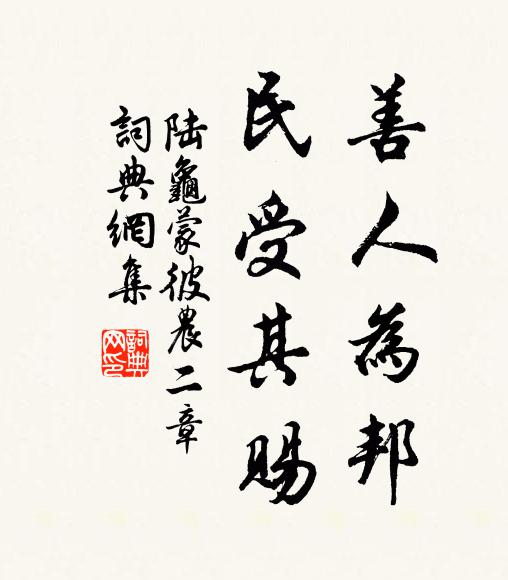 善人為邦
民受其賜
陆龜蒙彼農二章
詞典網集
詞典网印